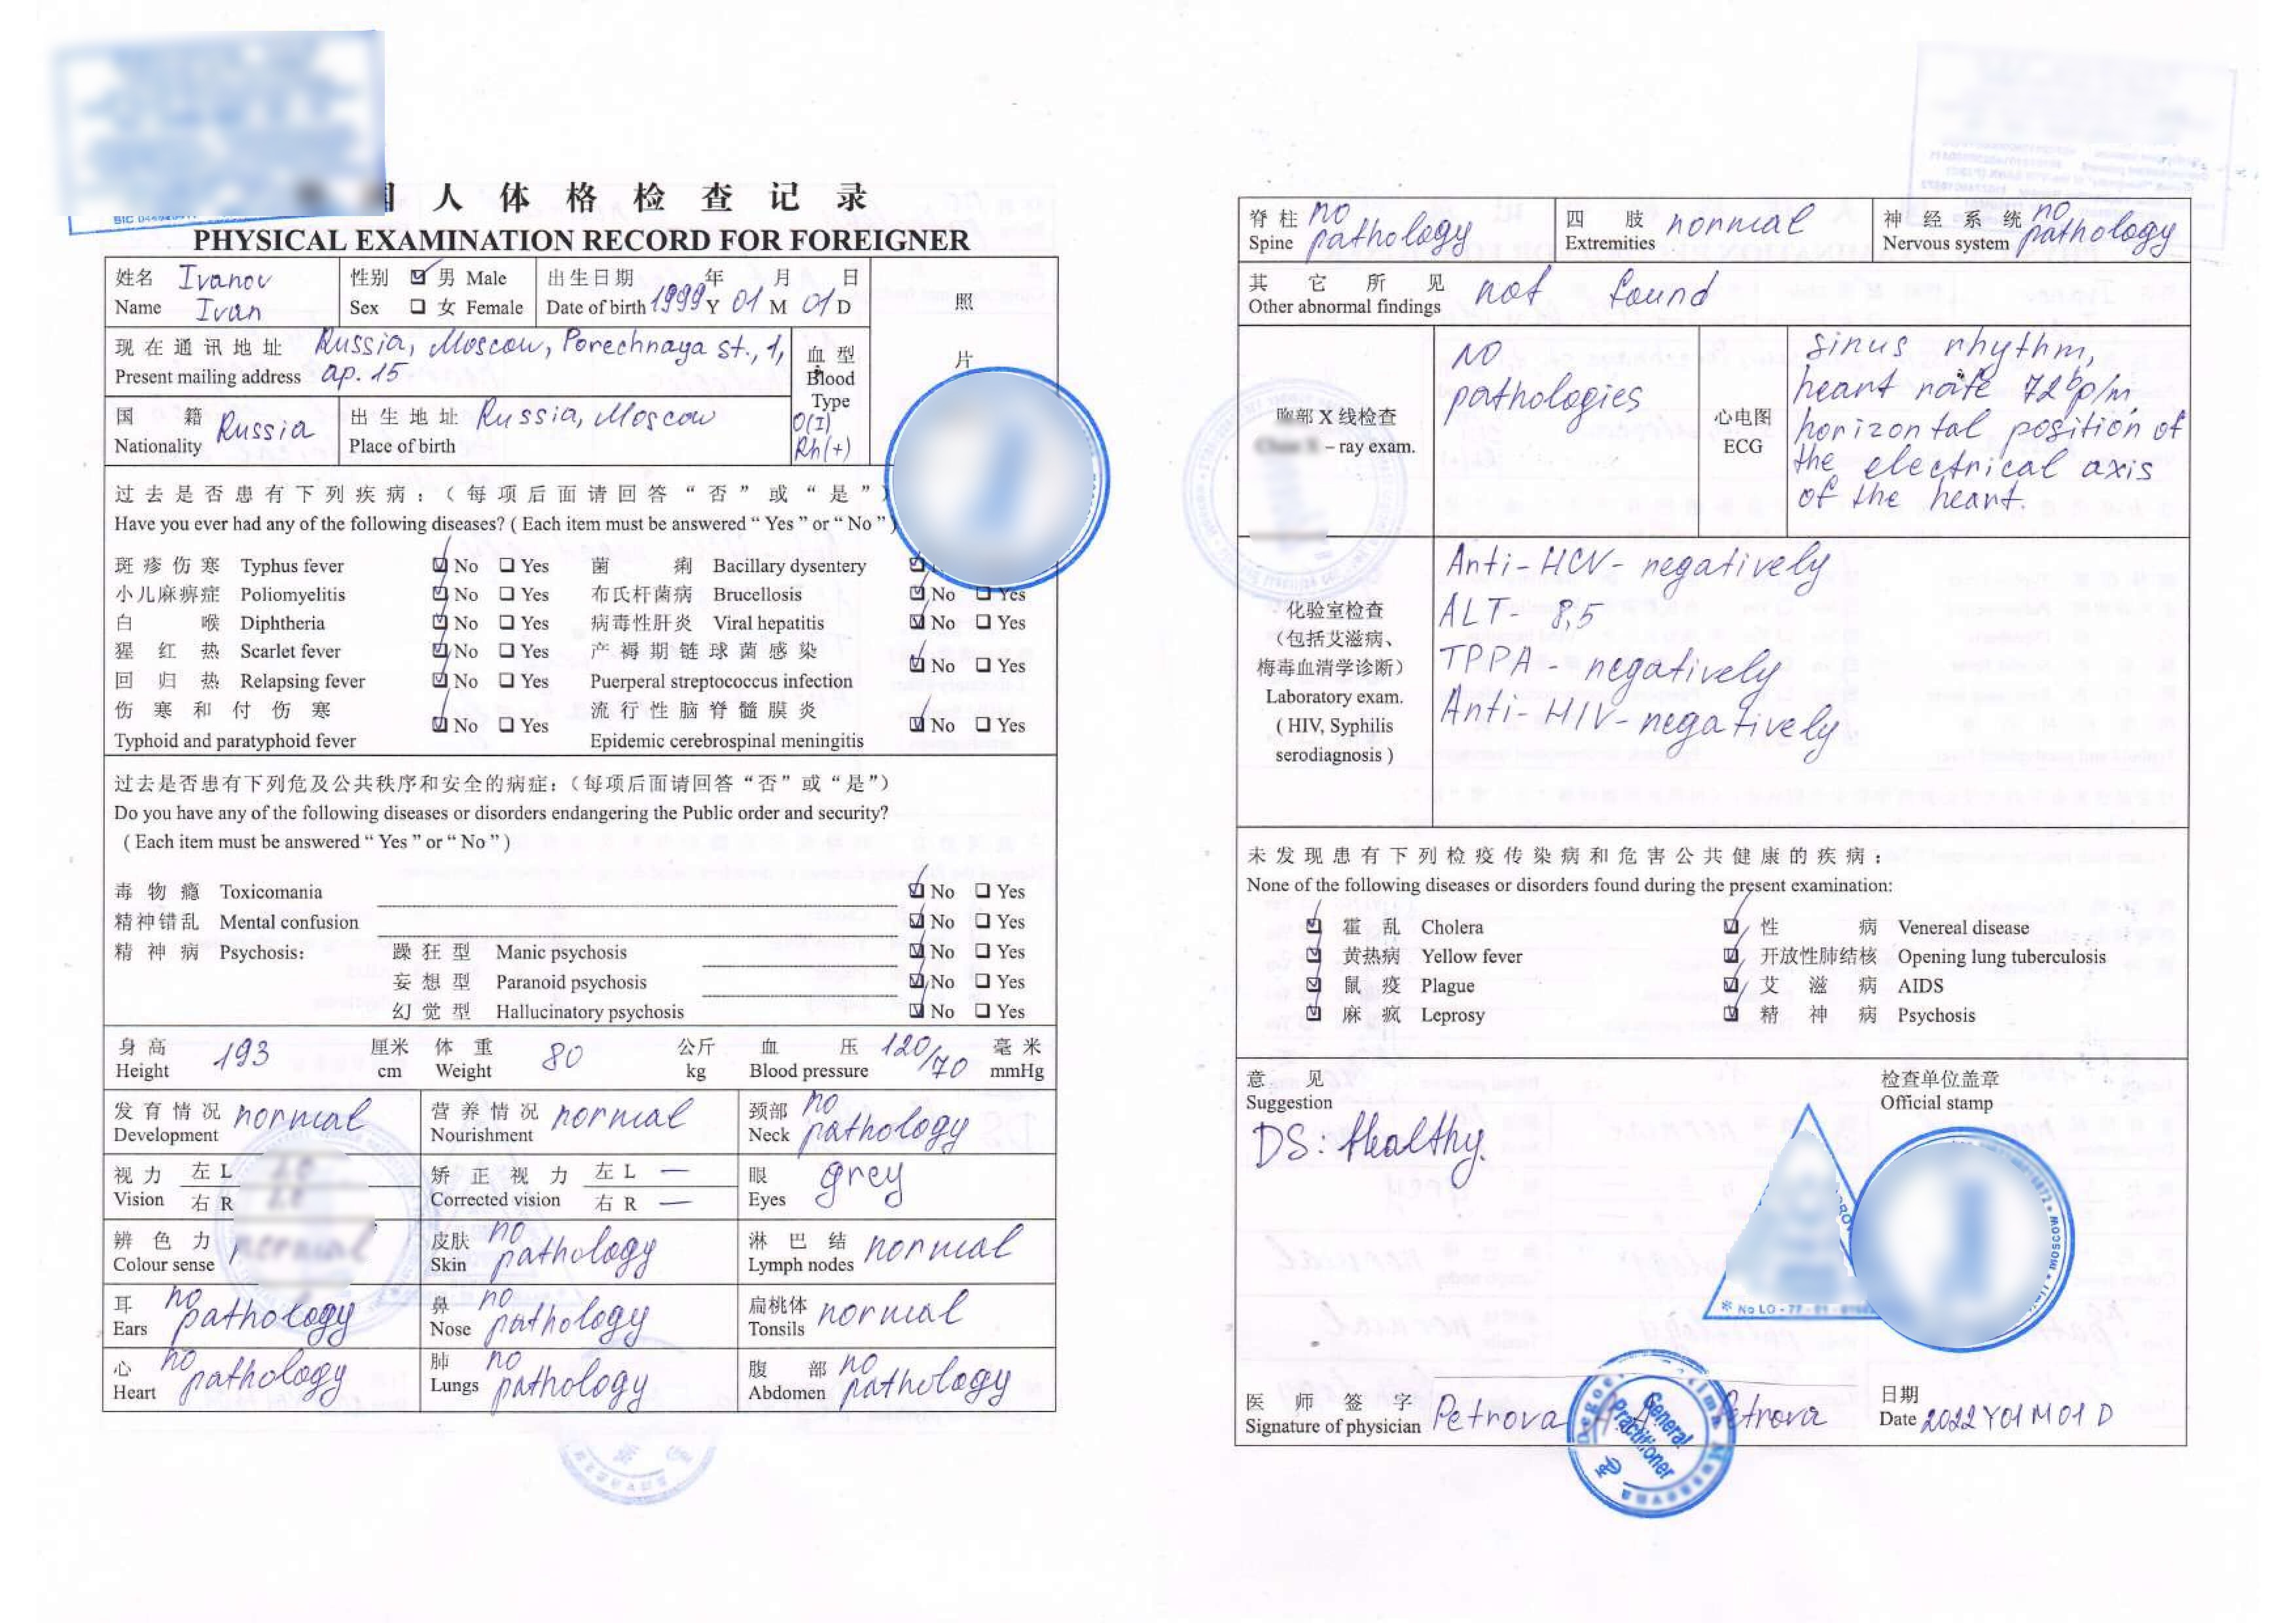 人 体 格 检 查 记 录
PHYSICAL EXAMINATION RECORD FOR FOREIGNER
姓名 Name Ivanov Ivan
性别 Sex ☑ 男 Male ☐ 女 Female
出生日期 Date of birth 1999 年 Y 01 月 M 01 日 D
照
片
现在通讯地址 Present mailing address Russia, Moscow, Porechnaya st., 1, ap. 15
血型 Blood Type O(I) Rh(+)
国 籍 Nationality Russia
出生地址 Place of birth Russia, Moscow
过去是否患有下列疾病：（每项后面请回答“否”或“是”）
Have you ever had any of the following diseases? ( Each item must be answered “ Yes ” or “ No ” )
斑疹伤寒 Typhus fever ☑ No ☐ Yes 菌 痢 Bacillary dysentery
小儿麻痹症 Poliomyelitis ☑ No ☐ Yes 布氏杆菌病 Brucellosis ☑ No ☐ Yes
白 喉 Diphtheria ☑ No ☐ Yes 病毒性肝炎 Viral hepatitis ☑ No ☐ Yes
猩 红 热 Scarlet fever ☑ No ☐ Yes 产褥期链球菌感染
回 归 热 Relapsing fever ☑ No ☐ Yes Puerperal streptococcus infection ☑ No ☐ Yes
伤寒和付伤寒 流行性脑脊髓膜炎
Typhoid and paratyphoid fever ☑ No ☐ Yes Epidemic cerebrospinal meningitis ☑ No ☐ Yes
过去是否患有下列危及公共秩序和安全的病症：（每项后面请回答“否”或“是”）
Do you have any of the following diseases or disorders endangering the Public order and security?
( Each item must be answered “ Yes ” or “ No ” )
毒 物 瘾 Toxicomania ☑ No ☐ Yes
精神错乱 Mental confusion ☑ No ☐ Yes
精 神 病 Psychosis: 躁 狂 型 Manic psychosis ☑ No ☐ Yes
妄 想 型 Paranoid psychosis ☑ No ☐ Yes
幻 觉 型 Hallucinatory psychosis ☑ No ☐ Yes
身高 Height 193 厘米 cm 体 重 Weight 80 公斤 kg 血 压 Blood pressure 120/70 毫米 mmHg
发育情况 Development normal 营养情况 Nourishment normal 颈部 Neck no pathology
视力 Vision 左 L 右 R 矫正视力 Corrected vision 左 L — 右 R — 眼 Eyes grey
辨色力 Colour sense normal 皮肤 Skin no pathology 淋巴结 Lymph nodes normal
耳 Ears no pathology 鼻 Nose no pathology 扁桃体 Tonsils normal
心 Heart no pathology 肺 Lungs no pathology 腹 部 Abdomen no pathology
脊柱 Spine no pathology 四 肢 Extremities normal 神经系统 Nervous system no pathology
其 它 所 见 Other abnormal findings not found
胸部 X 线检查
– ray exam.
NO
pathologies
心电图
ECG
sinus rhythm,
heart rate 72 bp/m,
horizontal position of
the electrical axis
of the heart.
化验室检查
（包括艾滋病、
梅毒血清学诊断）
Laboratory exam.
( HIV, Syphilis
serodiagnosis )
Anti-HCV- negatively
ALT- 8,5
TPPA - negatively
Anti-HIV- negatively
未发现患有下列检疫传染病和危害公共健康的疾病：
None of the following diseases or disorders found during the present examination:
☑ 霍 乱 Cholera ☑ 性 病 Venereal disease
☑ 黄热病 Yellow fever ☑ 开放性肺结核 Opening lung tuberculosis
☑ 鼠 疫 Plague ☑ 艾 滋 病 AIDS
☑ 麻 疯 Leprosy ☑ 精 神 病 Psychosis
意 见
Suggestion
DS: Healthy.
检查单位盖章
Official stamp
No LO - 77 - 01
MOSCOW
医 师 签 字
Signature of physician Petrova Petrova
General Practitioner
日期
Date 2022 Y 01 M 01 D